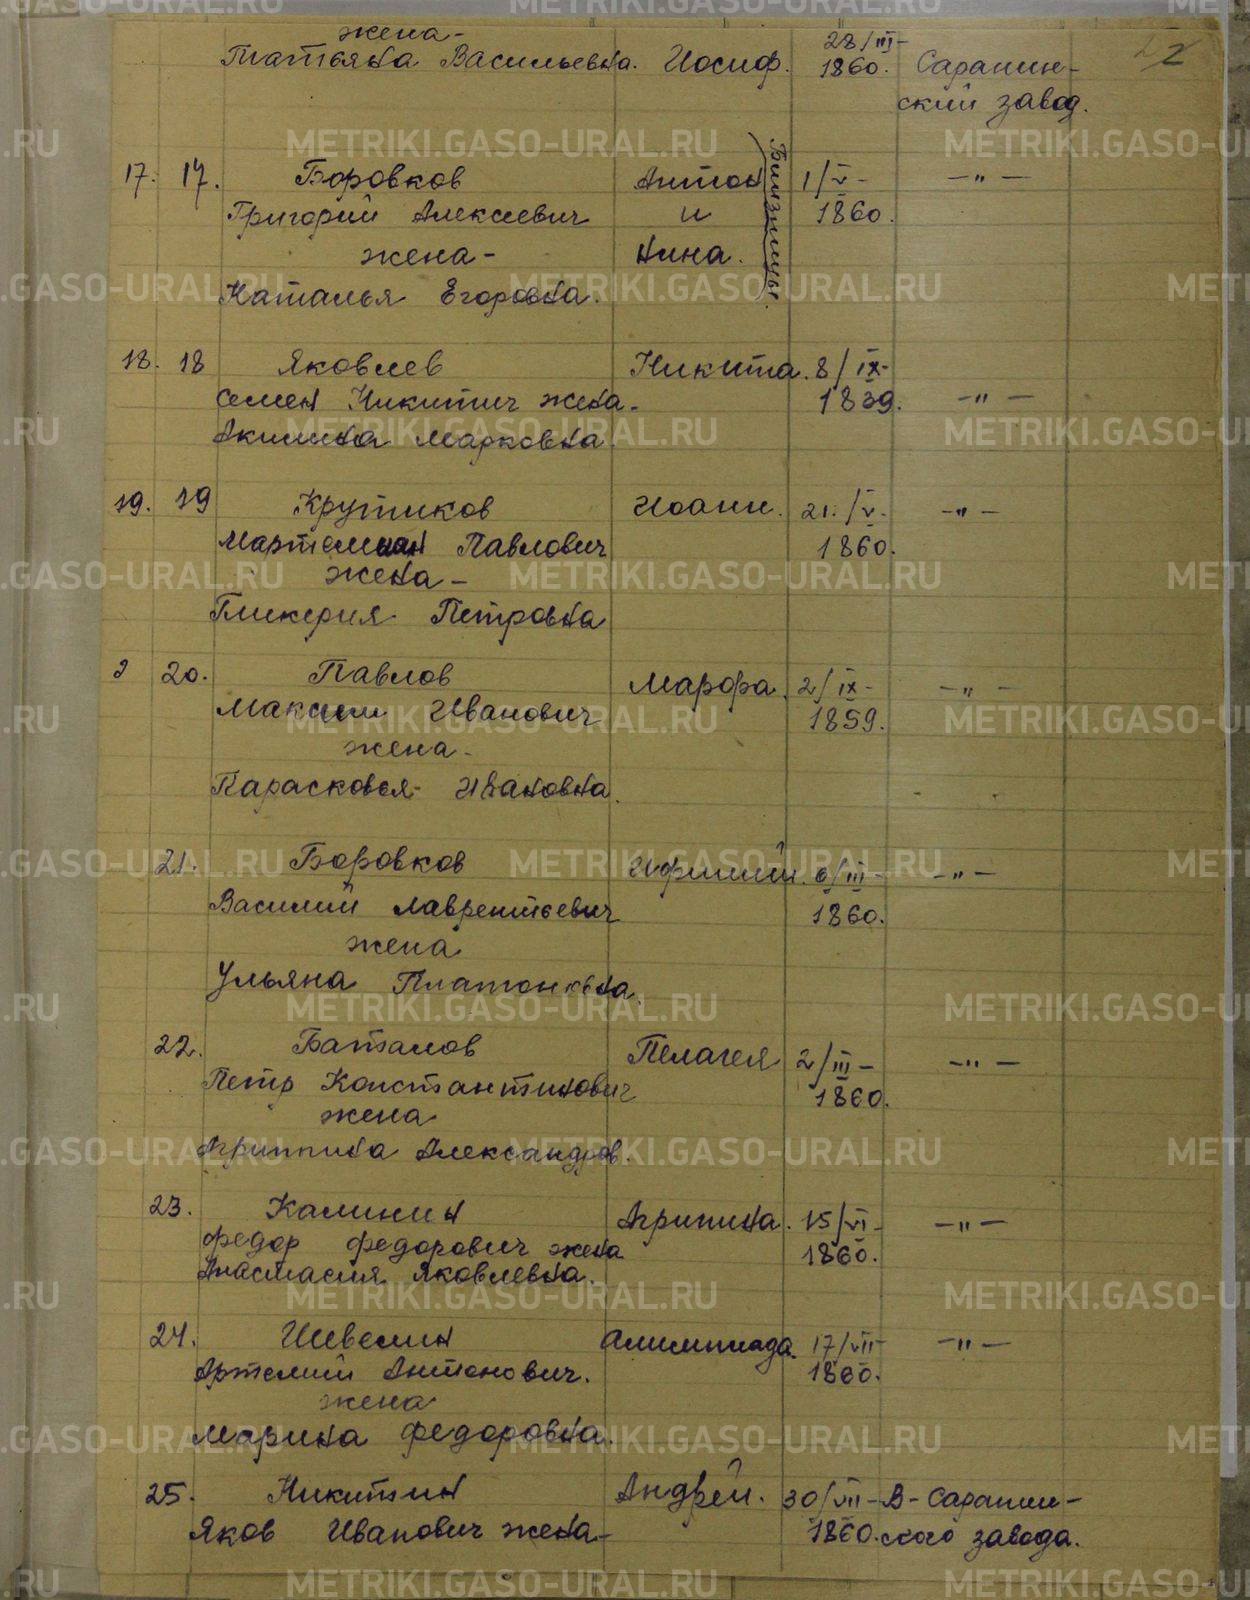 жена-
Татьяна Васильевна. Иосиф. 28/III-1860. Саранин-
ский завод.
2
17. 17. Боровков Антон 1/V- —"—
Григорий Алексеевич и 1860.
жена- Анна. Близнецы.
Наталья Егоровна.
18. 18 Яковлев Никита. 8/IX-
Семен Никитич жена- 1839. —"—
Акилина Марковна.
19. 19 Крутиков Иоанн. 21./V- —"—
Мартемиан Павлович 1860.
жена-
Гликерия Петровна
20. Павлов Марфа. 2/IX- —"—
Максим Иванович 1859.
жена-
Парасковья Ивановна.
21. Боровков 6/III- —"—
Василий Лаврентьевич 1860.
жена
Ульяна Платоновна.
22. Баталов Пелагея 2/III- —"—
Петр Константинович 1860.
жена
Агриппина Александров.
23. Калинин Агрипина. 15/VI- —"—
Федор Федорович жена 1860.
Анастасия Яковлевна.
24. Шевелин Алимпиада. 17/VII- —"—
Артемий Антонович. 1860.
жена
Марина Федоровна.
25. Никитин Андрей. 30/VII- В-Саранин-
Яков Иванович жена- 1860. ского завода.
METRIKI.GASO-URAL.RU